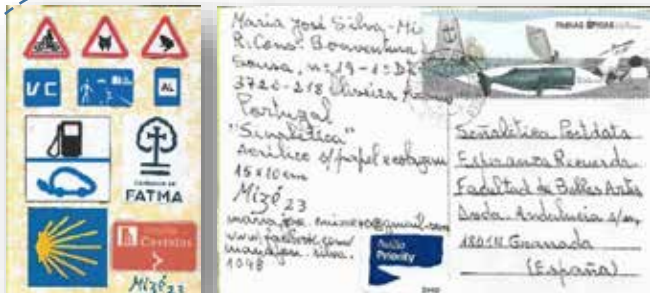 VC
AL
CAMINHOS DE
FATMA
Castelos
Mizé 23
Maria José Silva - Mi
R. Cons. Boaventura
Sousa, nº 19 - 1º Dt
3720-218 Oliveira
Portugal
"Sinalética"
Acrílico s/papel e colagem
15x10 cm
Mizé 23
maria.jose.
www.facebook.com/
maria.jose.silva.
1048
Priority
Señalética Postdata
Esperanza Recuerda
Facultad de Bellas Artes
Avda. Andalucía s/n,
18014 Granada
(España)